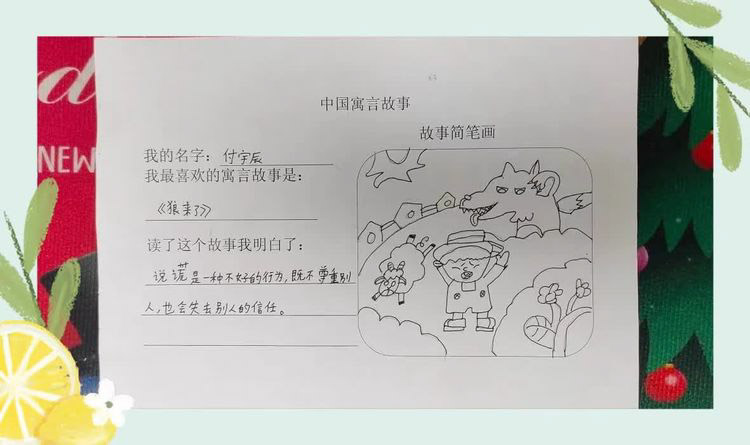 中国寓言故事
故事简笔画
我的名字：付宇辰
我最喜欢的寓言故事是：
《狼来了》
读了这个故事我明白了：
说谎是一种不好的行为，既不尊重别
人，也会失去别人的信任。
NEW